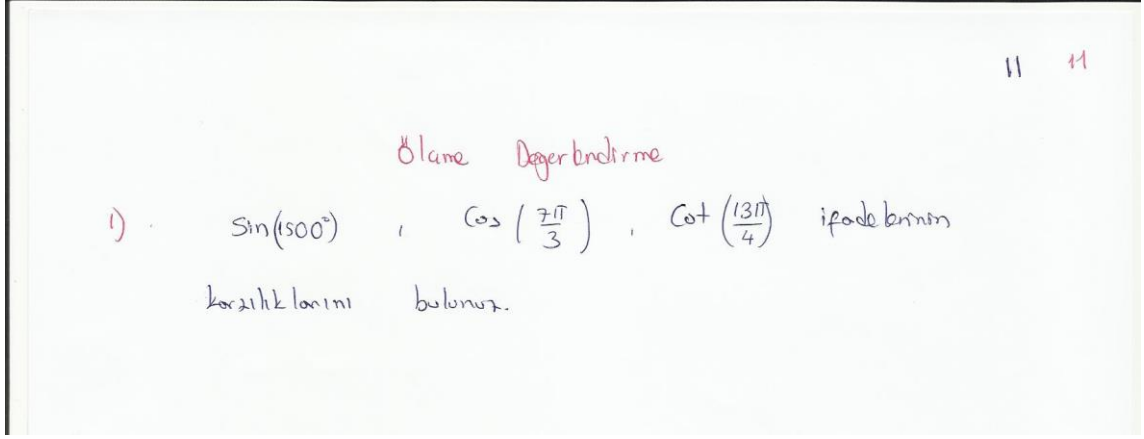 11 11
Ölçme Değerlendirme
1) Sin(1500°) , Cos (7π/3) , Cot (13π/4) ifadelerinin
karşılıklarını bulunuz.